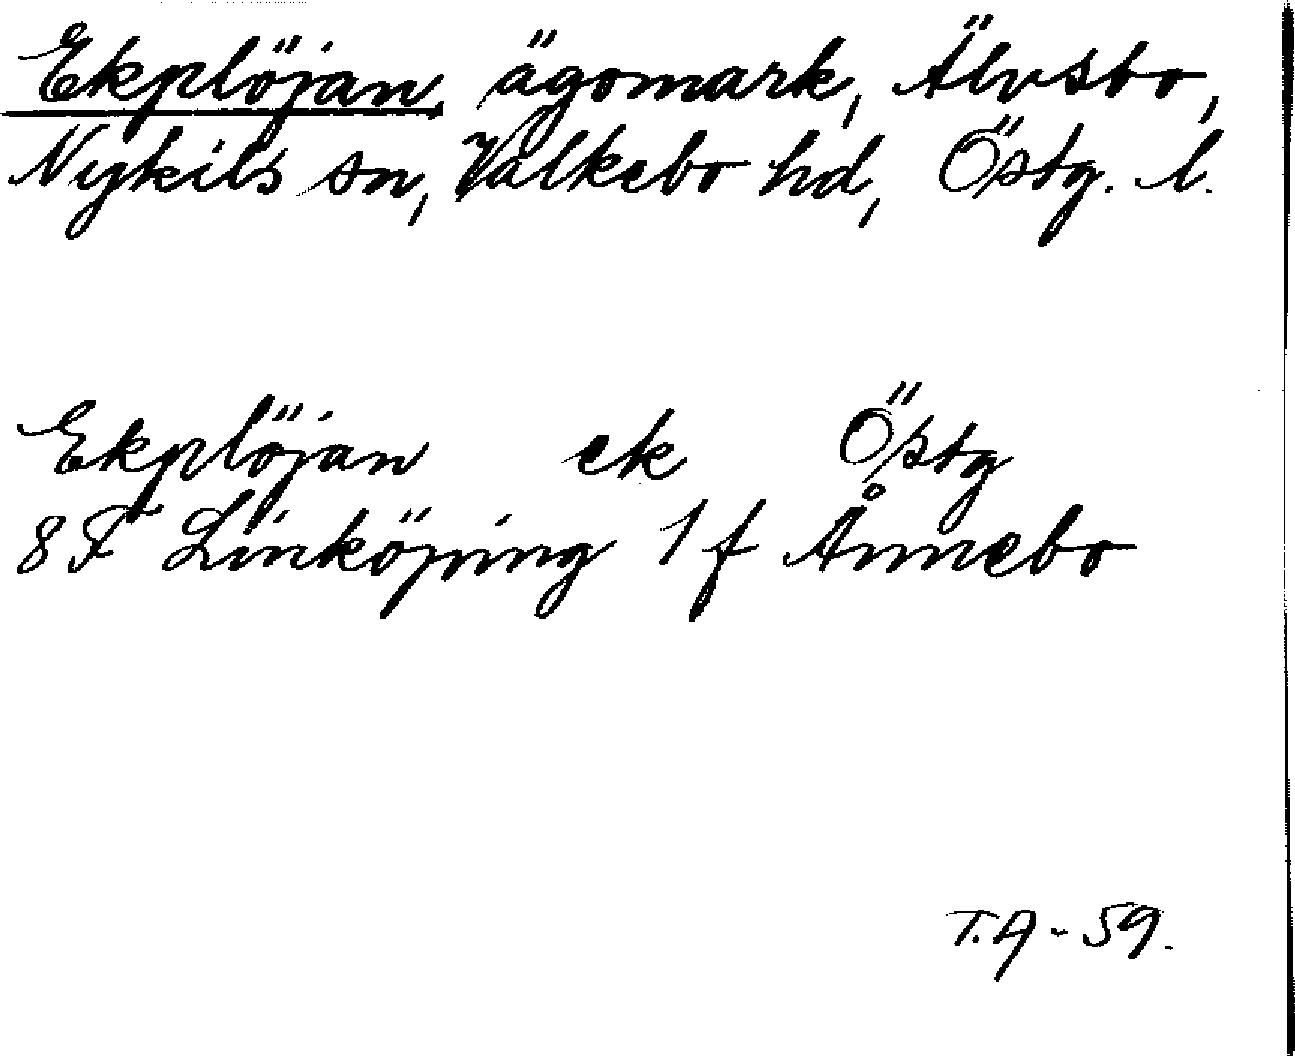 Ekplöjan, ägomark, Älvsbo,
Nykils sn, Valkebo hd, Östg. l.
Ekplöjan ek Östg
8F Linköping 1f Ånnebo
T.A-59.